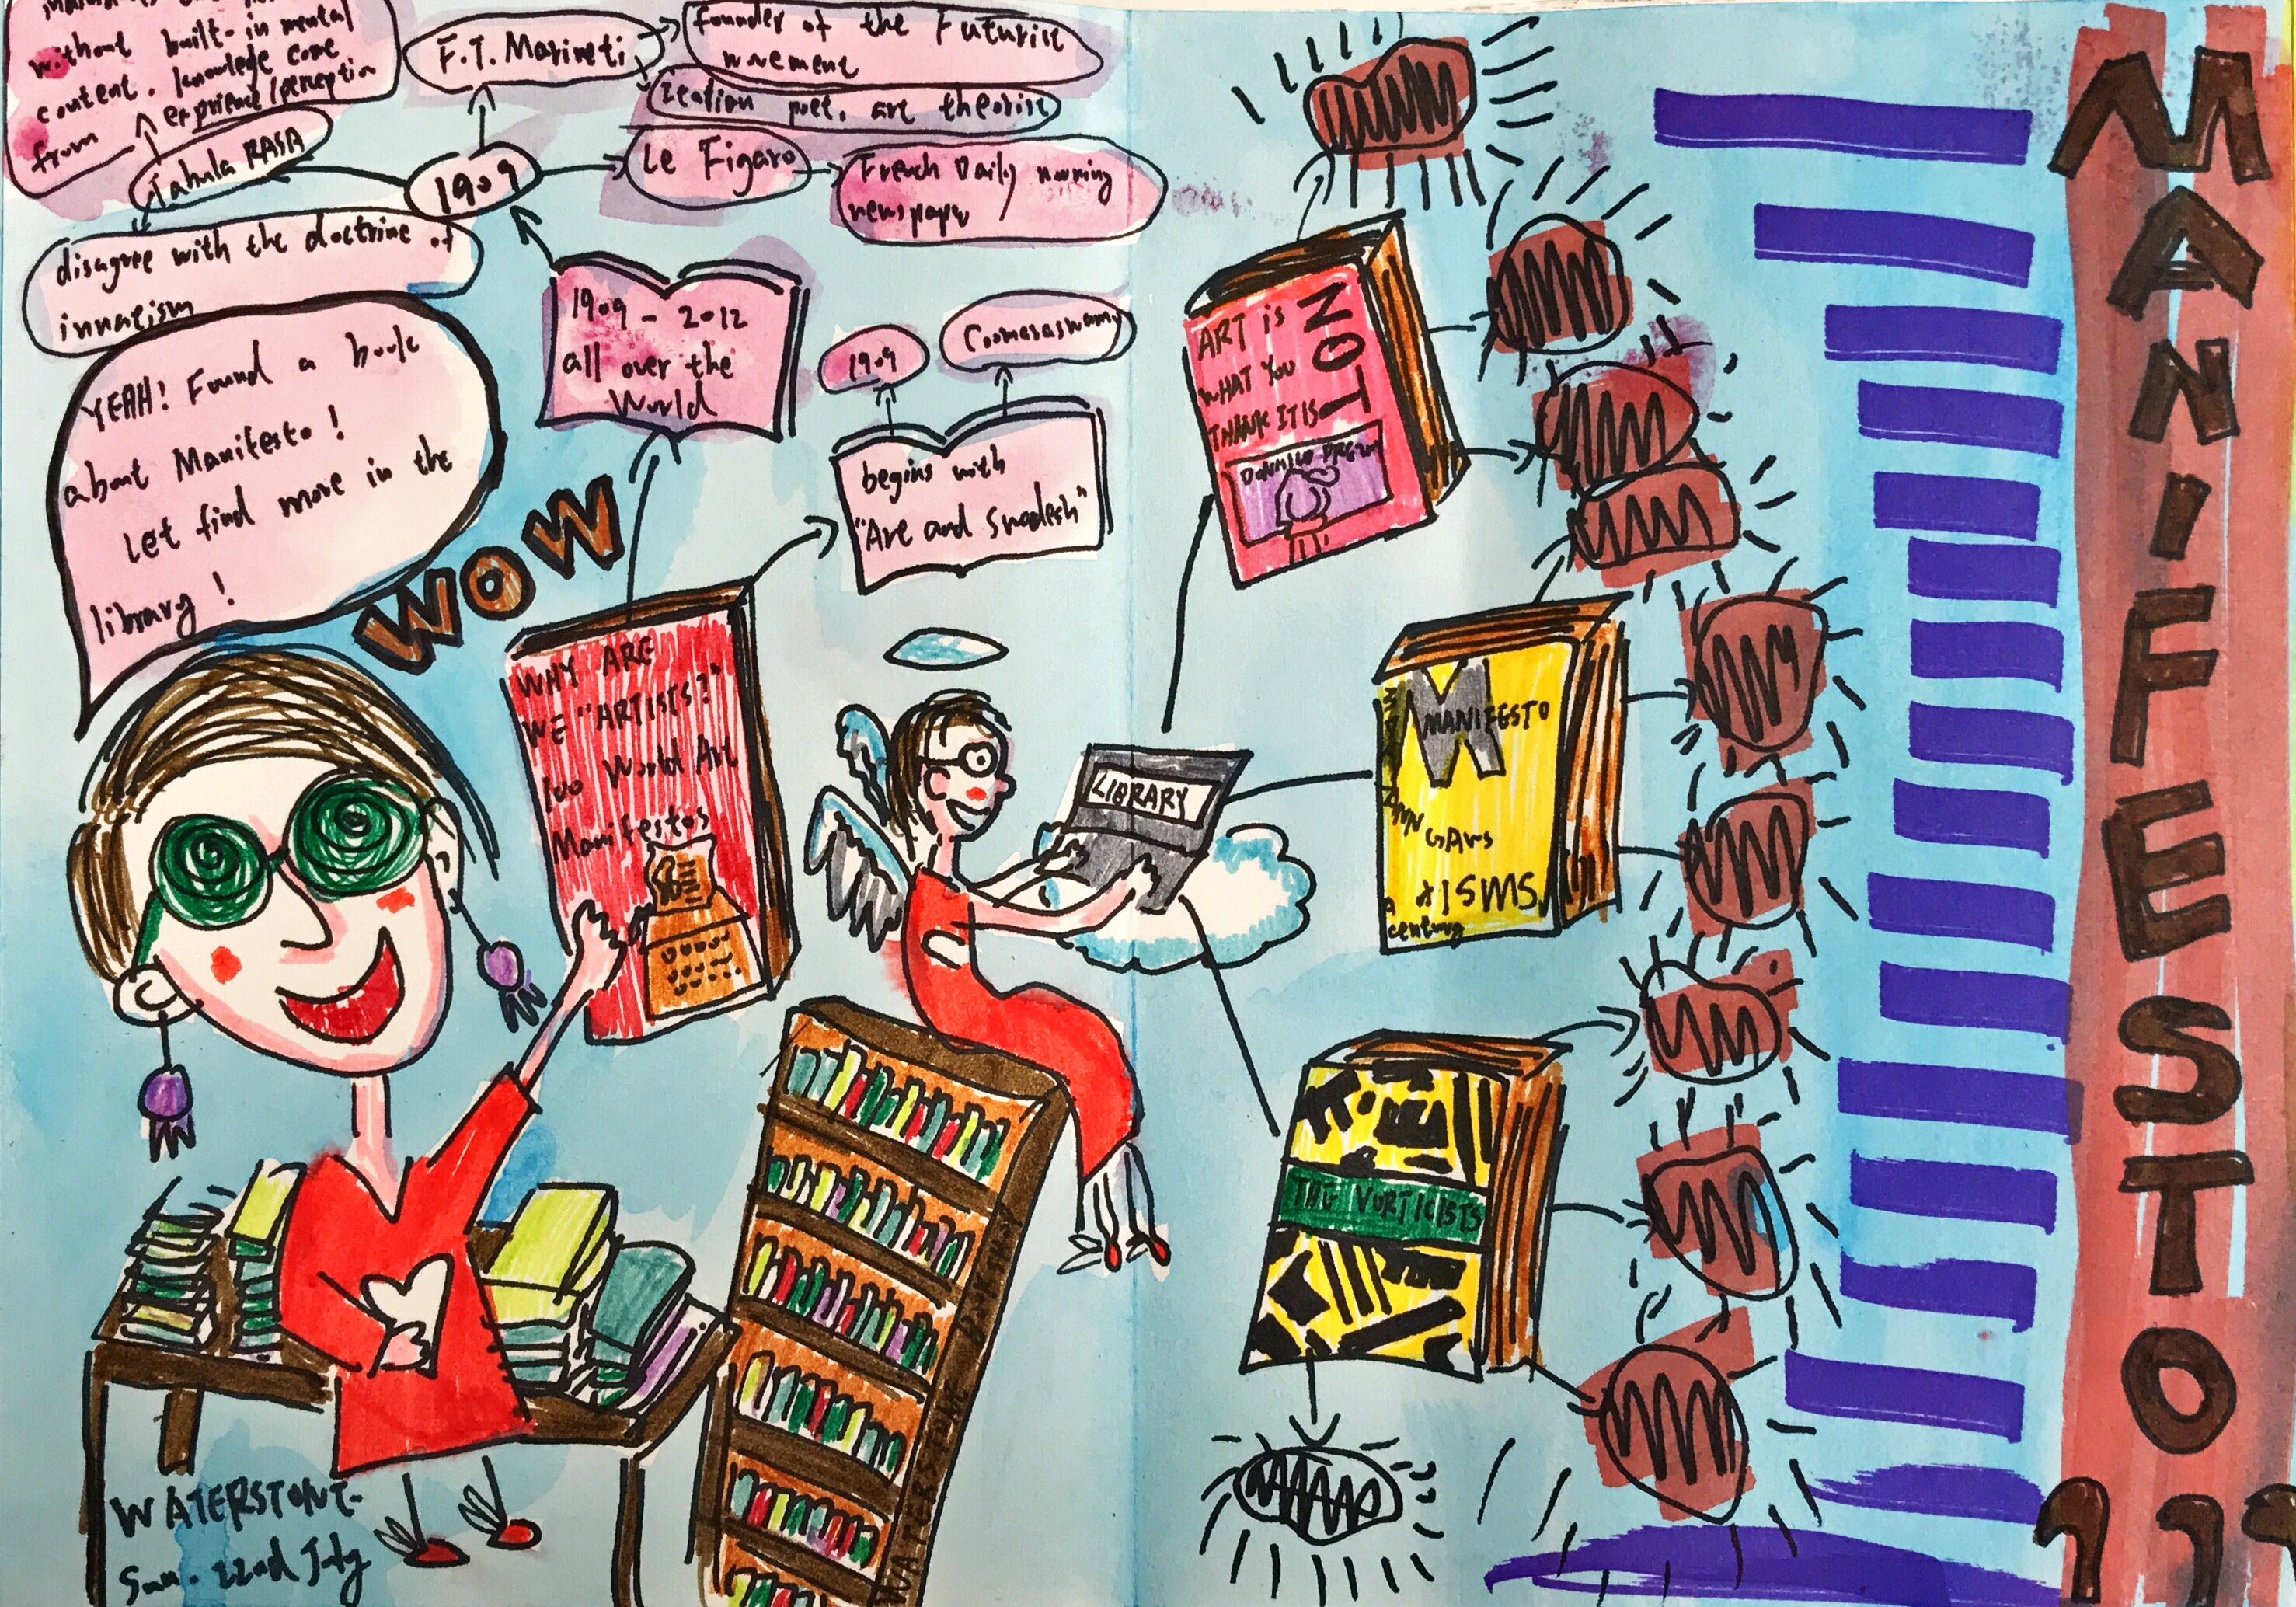 without built-in mental
content. knowledge come
from experience/perception
Tabula RASA
disagree with the doctrine of
innatism
1909
F.T. Marineti
founder of the Futurist
movement
poet. art theorist
Le Figaro
French Daily morning
newspaper
YEAH! Found a book
about Manifesto!
Let find more in the
library!
WOW
1909 - 2012
all over the
World
1909
Coomaraswamy
begins with
"Art and Swadesh"
WHY ARE
WE "ARTISTS?"
100 World Art
Manifestos
LIBRARY
ART is
WHAT YOU
THANK IT IS
NOT
MANIFESTO
ISMS
a
century
THE VORTICISTS
WATERSTONE BOOKSHOP
WATERSTONE-
Sun. 22nd July
MANIFESTO
???